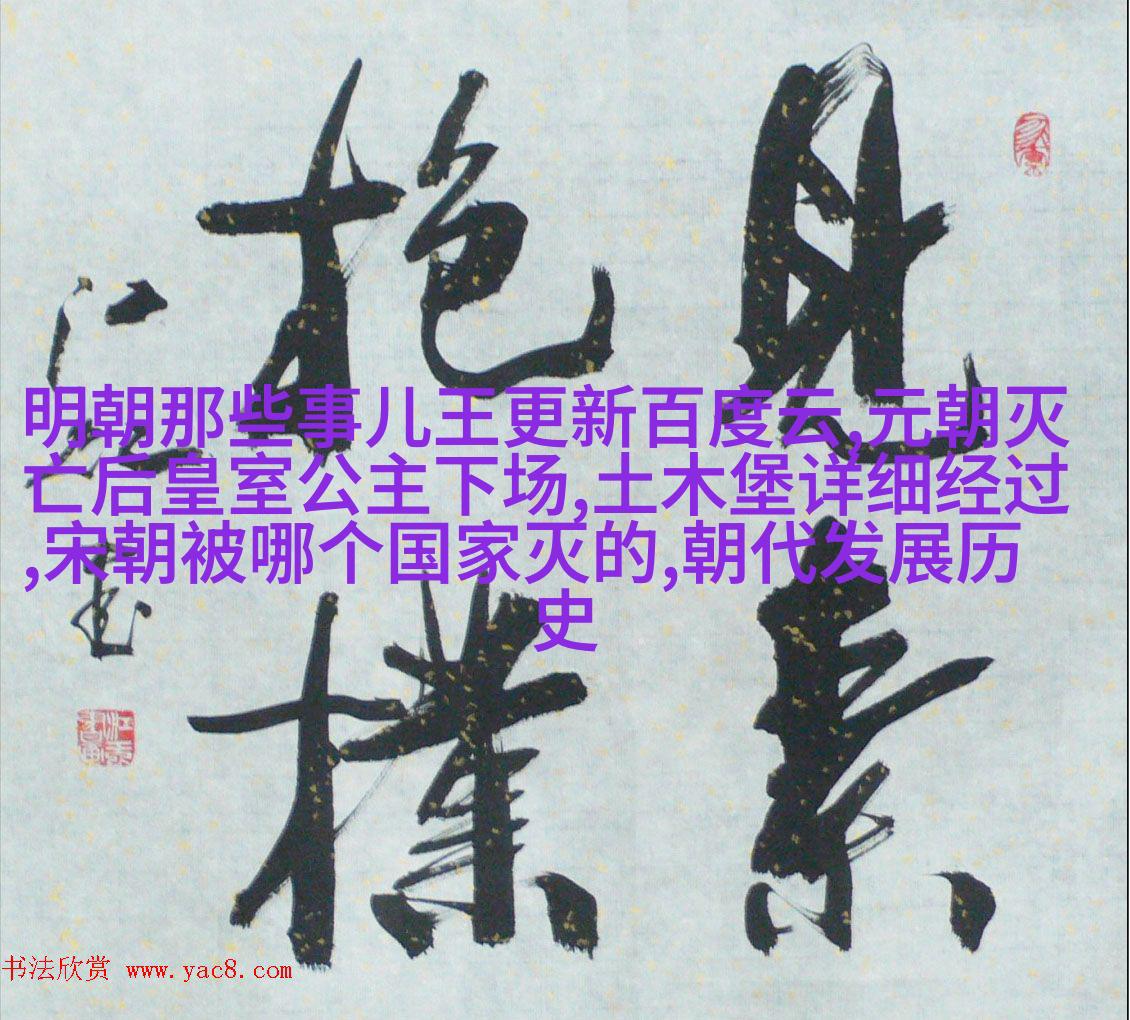 見素
抱樸
明朝那些事儿王更新百度云,元朝灭
亡后皇室公主下场,土木堡详细经过
,宋朝被哪个国家灭的,朝代发展历
史
书法欣赏 www.yac8.com